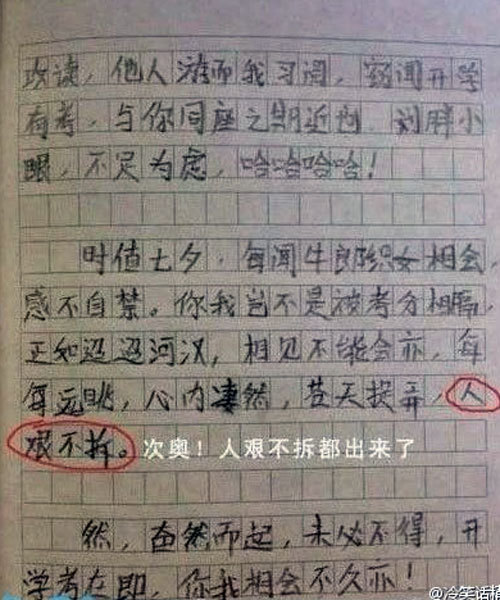 攻读，他人游而我习阅，窃闻开学
有考，与你同座之期近矣，刘胖小
眼，不足为虑，哈哈哈哈！
时值七夕，每闻牛郎织女相会，
感不自禁。你我岂不是被考分相隔，
正如迢迢河汉，相见不能会亦，每
每远眺，心内凄然，苍天捉弄，人
艰不拆。
次奥！人艰不拆都出来了
然，奋然而起，未必不得，开
学考在即，你我相会不久亦！
@冷笑话